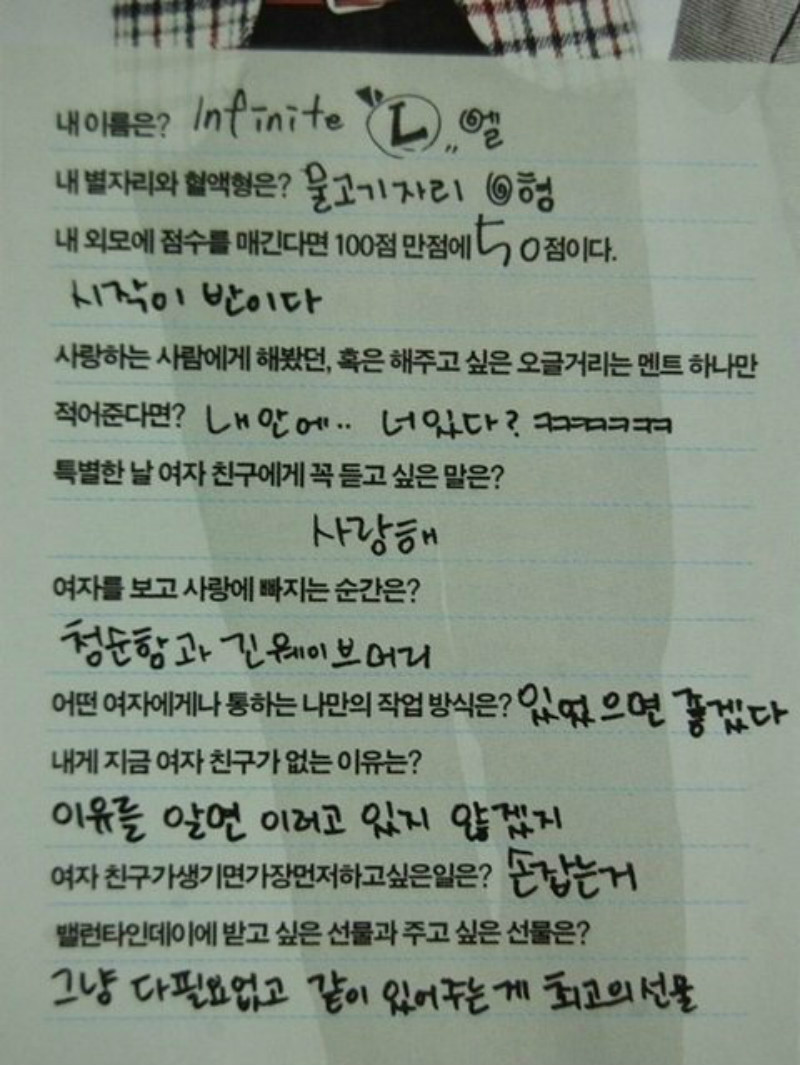 내 이름은? Infinite "L" 엘
내 별자리와 혈액형은? 물고기자리 O형
내 외모에 점수를 매긴다면 100점 만점에 50점이다.
시작이 반이다
사랑하는 사람에게 해봤던, 혹은 해주고 싶은 오글거리는 멘트 하나만
적어준다면? 내 안에.. 너있다? ㅋㅋㅋㅋㅋㅋ
특별한 날 여자 친구에게 꼭 듣고 싶은 말은?
사랑해
여자를 보고 사랑에 빠지는 순간은?
청순함과 긴웨이브머리
어떤 여자에게나 통하는 나만의 작업 방식은? 있었으면 좋겠다
내게 지금 여자 친구가 없는 이유는?
이유를 알면 이러고 있지 않겠지
여자 친구가생기면가장먼저하고싶은일은? 손잡는거
밸런타인데이에 받고 싶은 선물과 주고 싶은 선물은?
그냥 다필요없고 같이 있어주는게 최고의선물